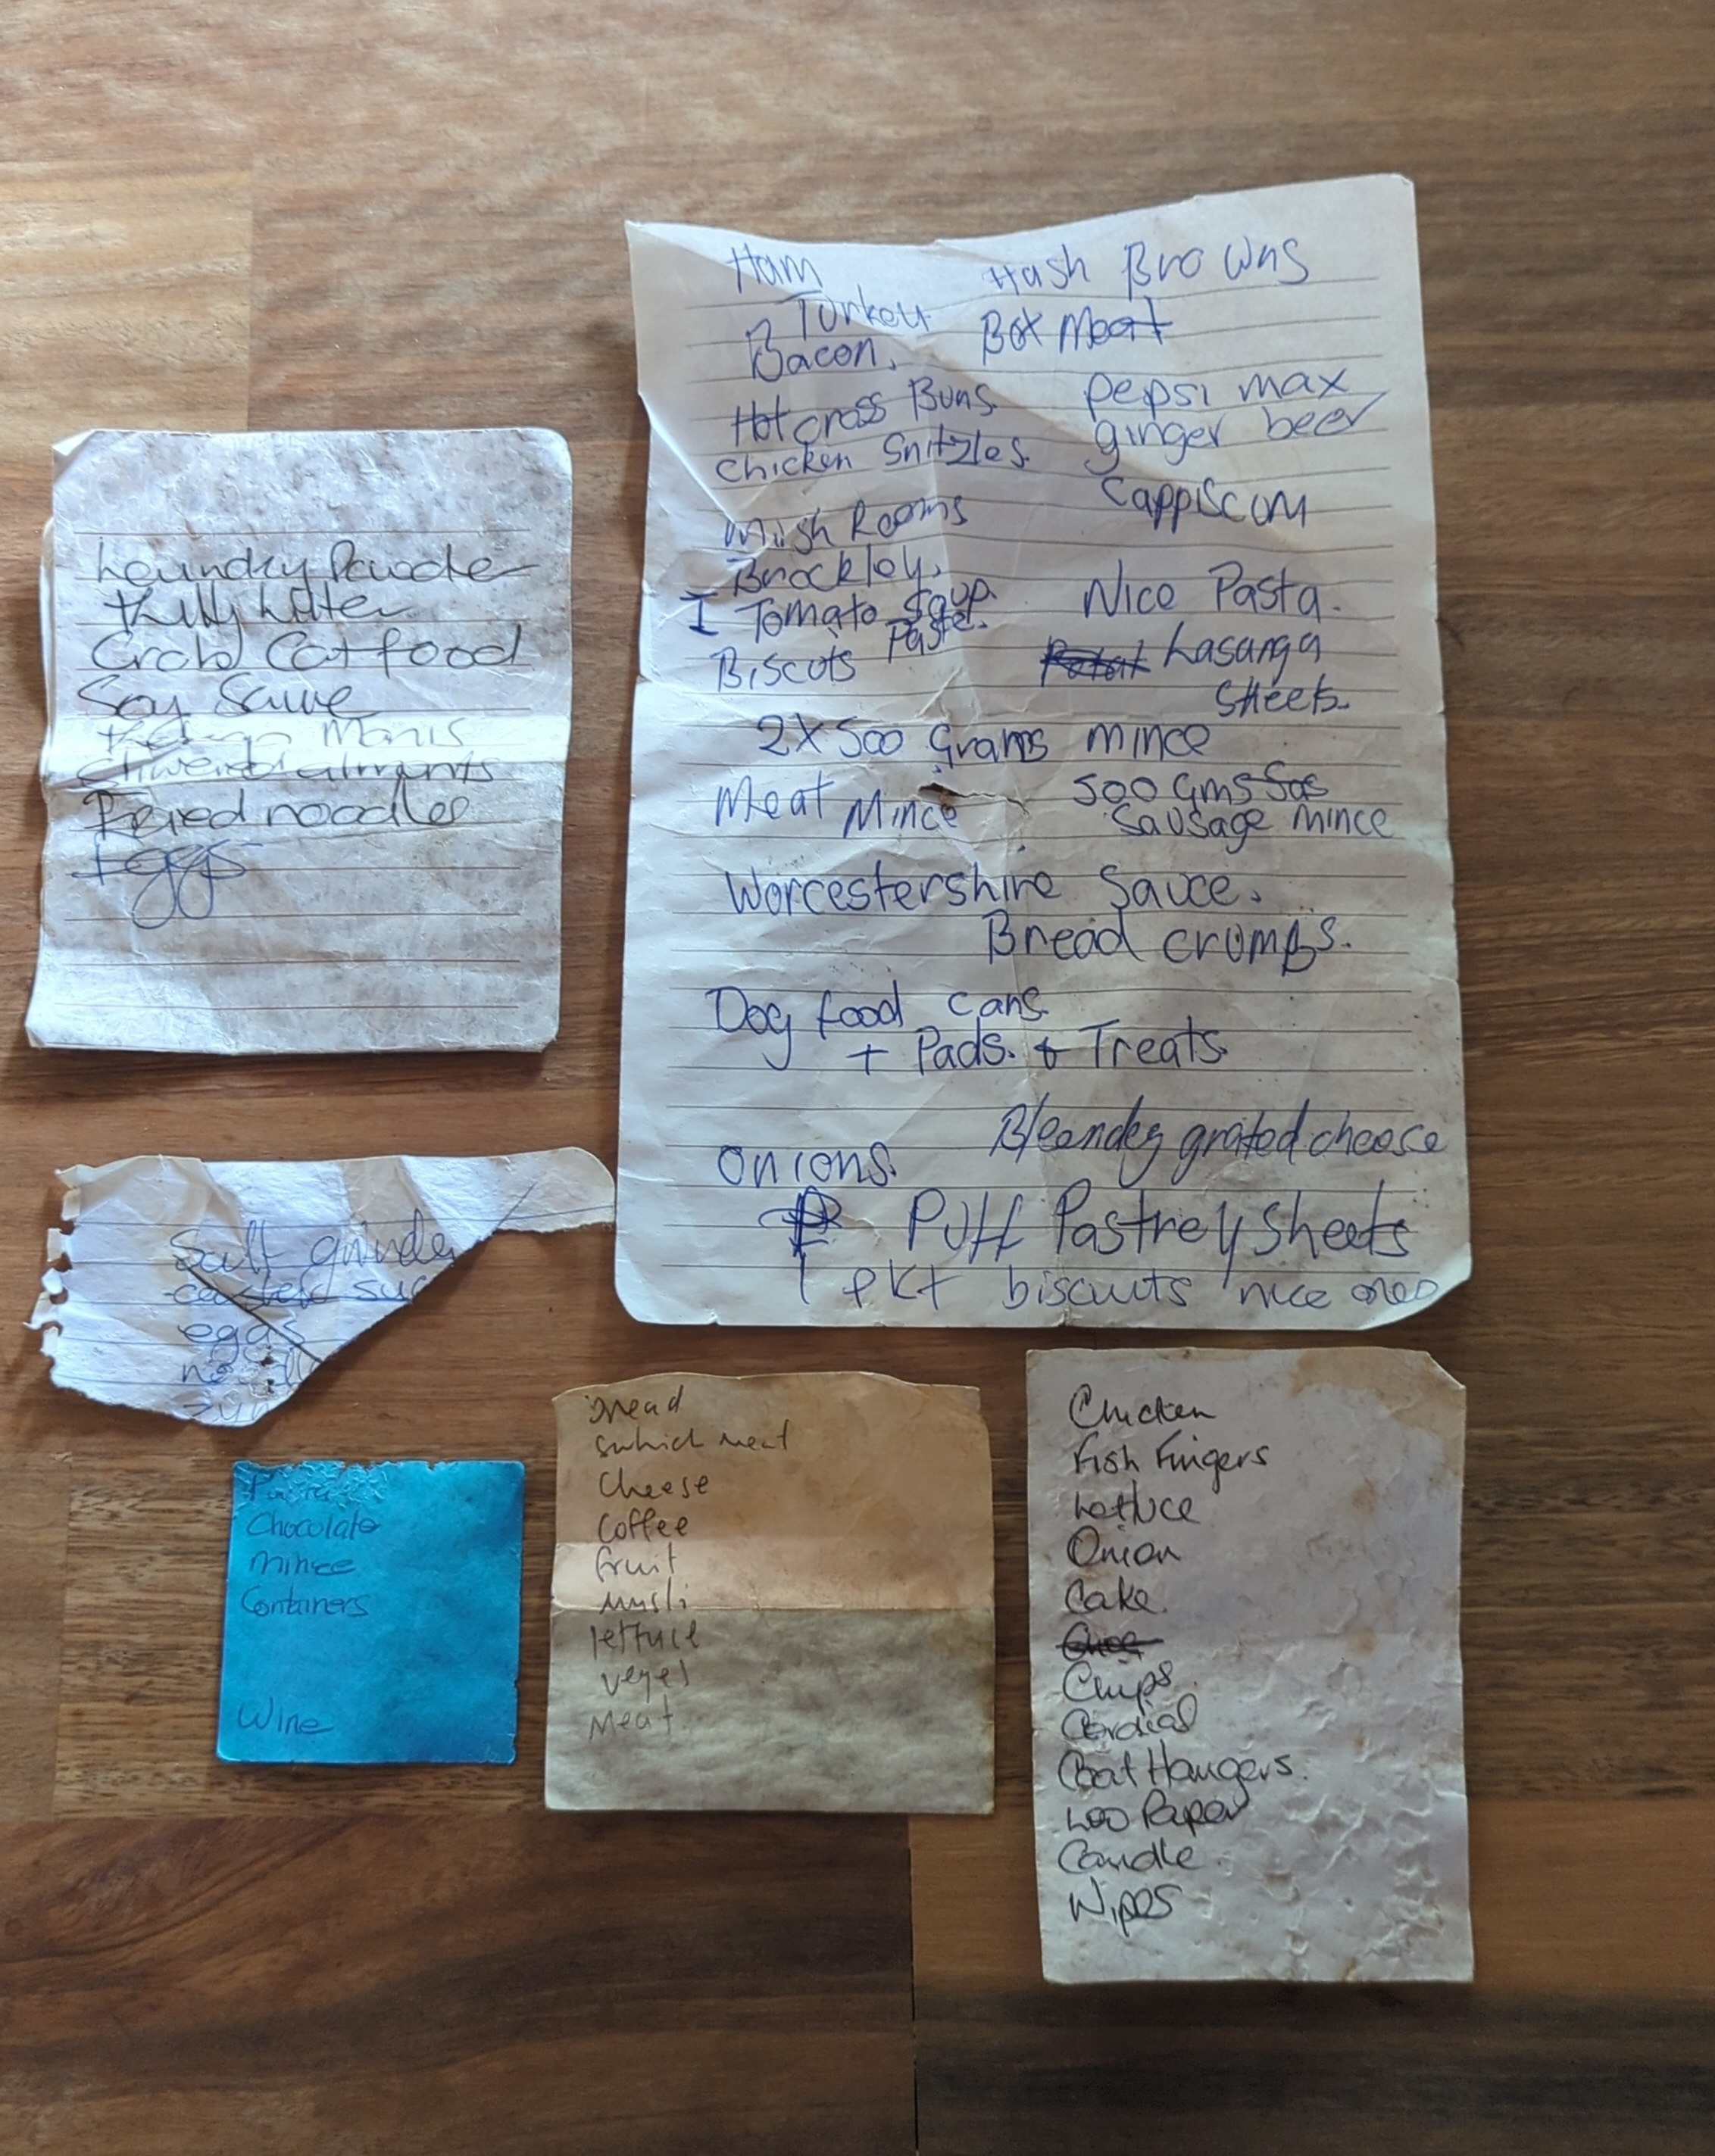 Ham Hash Browns
Turkey Box Meat
Bacon.
Hot cross Buns. pepsi max
ginger beer
Chicken Snitzles.
Cappiscum
Mush Rooms
Brockley.
I Tomato Soup. Nice Pasta.
Paste.
Biscuts Lasanga
Sheets
2X 500 Grams mince
Meat Mince 500 Gms Sos
Sausage Mince
Worcestershire Sauce.
Bread crumbs.
Dog food cans
+ Pads. & Treats.
grated cheese
Onions.
Puff Pastrey Sheets
1 pkt biscuits nice ones
Laundry Powder
Kitty Litter
Cat food
Soy Sauce
Manis
noodles
Eggs
Salt grinde
caster su
eggs
Chocolate
Mince
Containers
Wine
bread
meat
Cheese
Coffee
fruit
musli
lettuce
veget
meat
Chicken
Fish Fingers
Lettuce
Onion
Cake
Chips
Cordial
Coat Hangers.
Loo Paper
Candle
Wipes